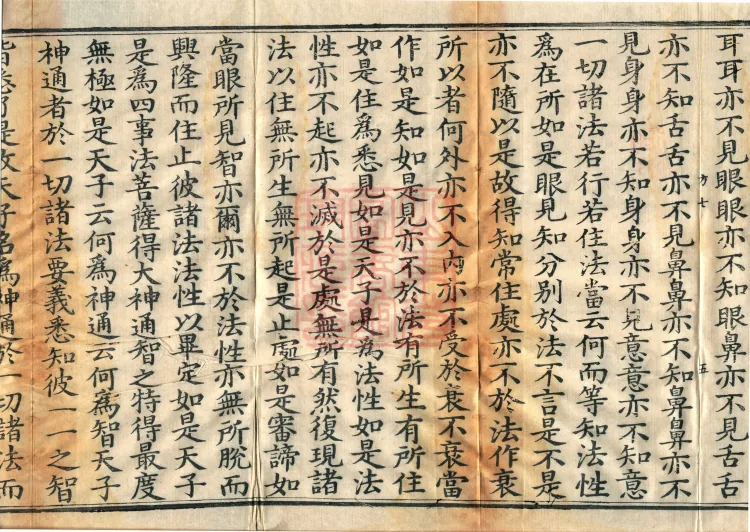 耳耳亦不見眼眼亦不知眼鼻亦不見舌舌
亦不知舌舌亦不見鼻鼻亦不知鼻鼻亦不
見身身亦不知身身亦不見意意亦不知意
一切諸法若行若住法當云何而等知法性
為在所如是眼見知分別於法不言是不是
亦不隨以是故得知常住處亦不於法作衰
所以者何外亦不入內亦不受於衰不衰當
作如是知如是見亦不於法有所生有所住
如是住為悉見如是天子是為法性如是法
性亦不起亦不滅於是處無所有然復現諸
法以住無所生無所起是止處如是審諦如
當眼所見智亦爾亦不於法性亦無所脫而
興隆而住止彼諸法法性以畢定如是天子
是為四事法菩薩得大神通智之特得最度
無極如是天子云何為神通云何為智天子
神通者於一切諸法要義悉知彼一一之智
皆悉了是故天子名為神通於一切諸法而
方七
五